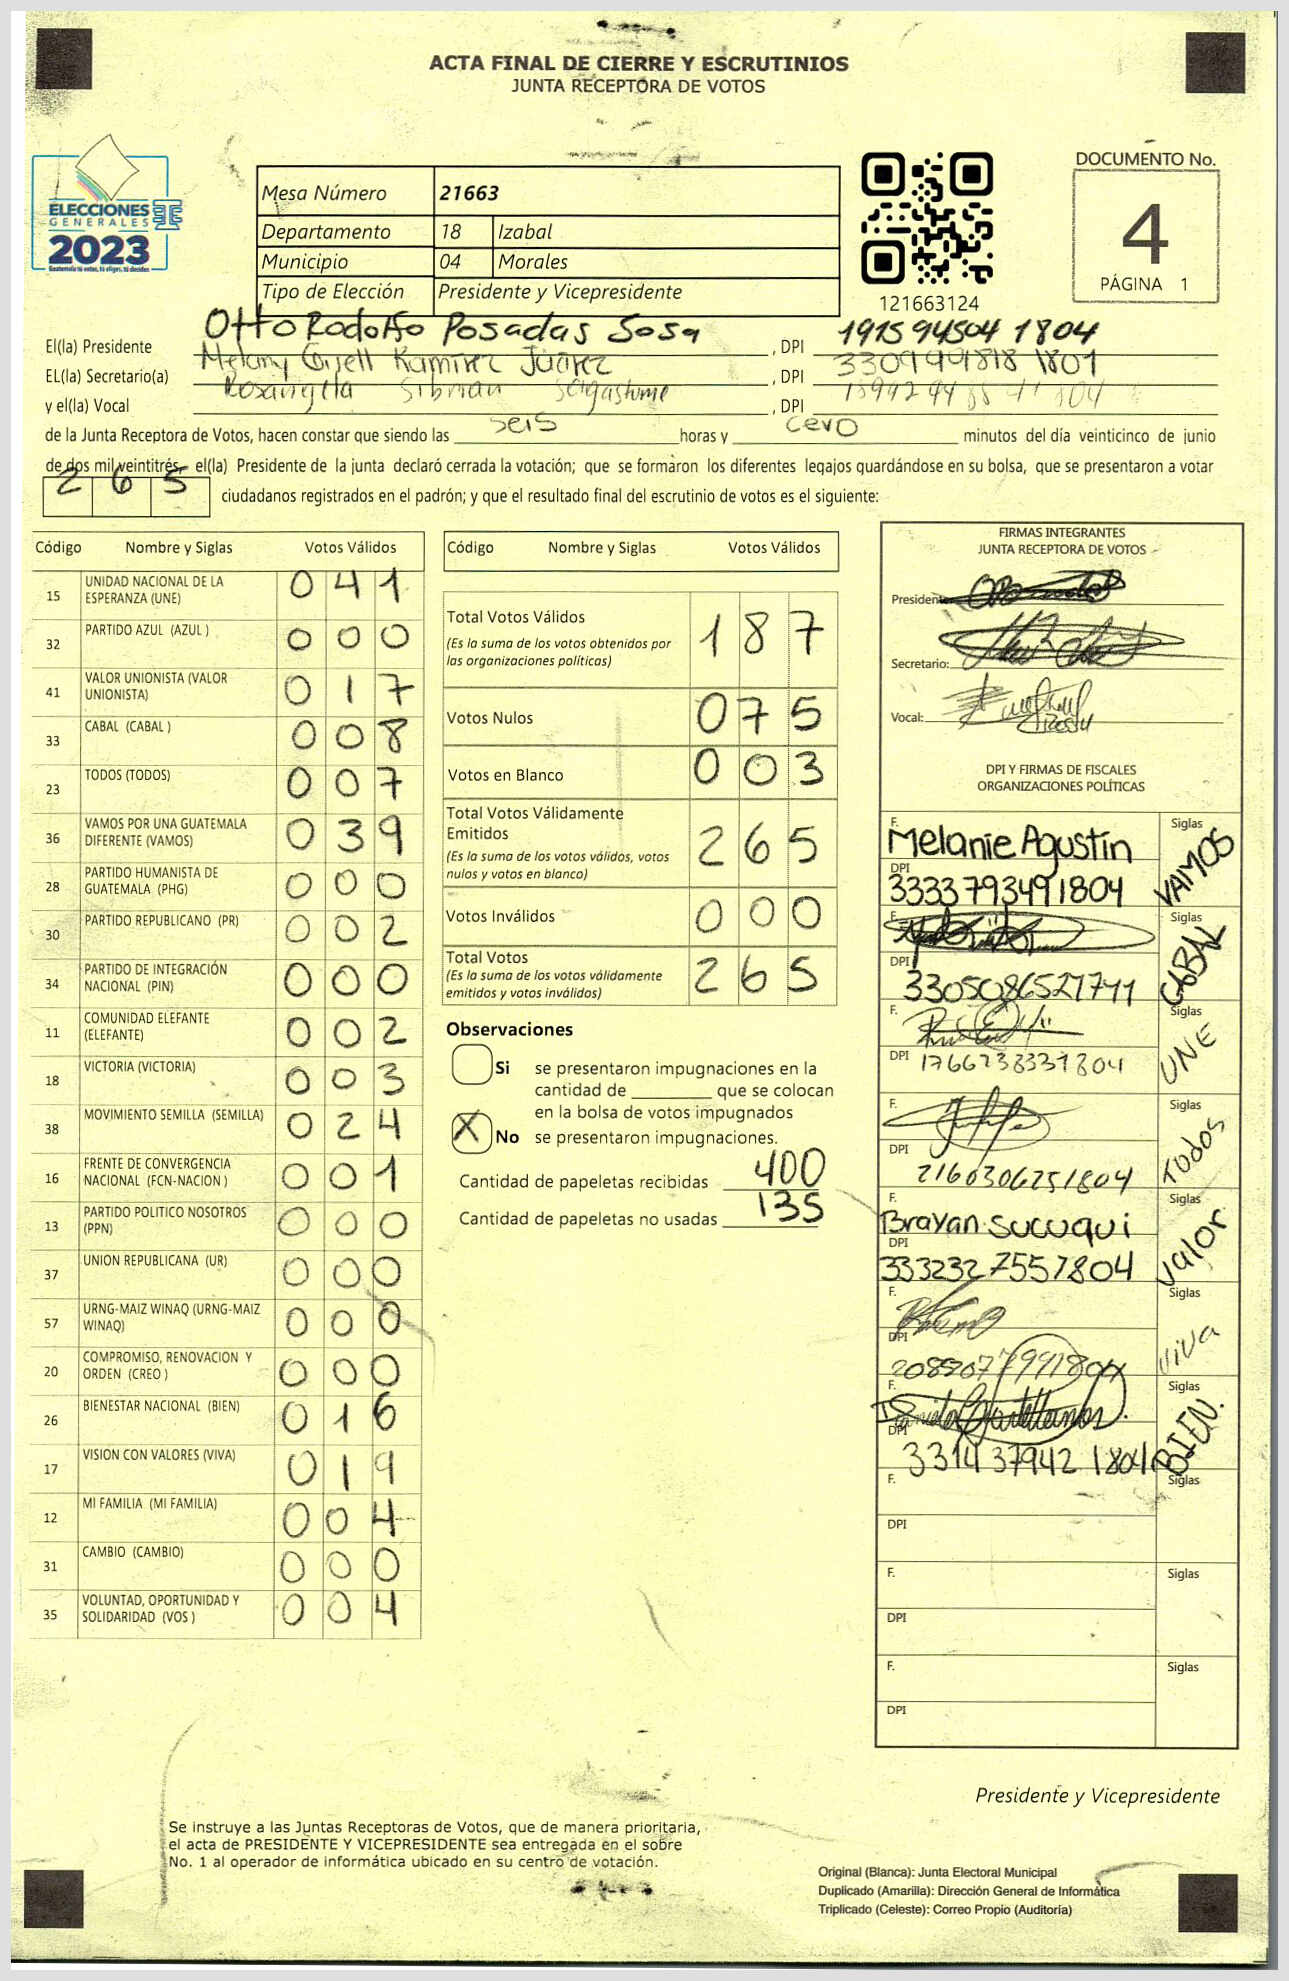 ACTA FINAL DE CIERRE Y ESCRUTINIOS
JUNTA RECEPTORA DE VOTOS
ELECCIONES
GENERALES
2023
Guatemala tú votas, tú eliges, tú decides
Mesa Número 21663
Departamento 18 Izabal
Municipio 04 Morales
Tipo de Elección Presidente y Vicepresidente
121663124
DOCUMENTO No.
4
PÁGINA 1
El(la) Presidente Otto Rodolfo Posadas Sosa , DPI 191594504 1804
EL(la) Secretario(a) Melany Gisell Ramírez Juárez , DPI 3309991818 1801
y el(la) Vocal Rosangela Sibrian , DPI
de la Junta Receptora de Votos, hacen constar que siendo las seis horas y cero minutos del día veinticinco de junio
de dos mil veintitrés, el(la) Presidente de la junta declaró cerrada la votación; que se formaron los diferentes legajos guardándose en su bolsa, que se presentaron a votar
265 ciudadanos registrados en el padrón; y que el resultado final del escrutinio de votos es el siguiente:
Código Nombre y Siglas Votos Válidos
15 UNIDAD NACIONAL DE LA ESPERANZA (UNE) 041
32 PARTIDO AZUL (AZUL ) 000
41 VALOR UNIONISTA (VALOR UNIONISTA) 017
33 CABAL (CABAL ) 008
23 TODOS (TODOS) 007
36 VAMOS POR UNA GUATEMALA DIFERENTE (VAMOS) 039
28 PARTIDO HUMANISTA DE GUATEMALA (PHG) 000
30 PARTIDO REPUBLICANO (PR) 002
34 PARTIDO DE INTEGRACIÓN NACIONAL (PIN) 000
11 COMUNIDAD ELEFANTE (ELEFANTE) 002
18 VICTORIA (VICTORIA) 003
38 MOVIMIENTO SEMILLA (SEMILLA) 024
16 FRENTE DE CONVERGENCIA NACIONAL (FCN-NACION ) 001
13 PARTIDO POLITICO NOSOTROS (PPN) 000
37 UNION REPUBLICANA (UR) 000
57 URNG-MAIZ WINAQ (URNG-MAIZ WINAQ) 000
20 COMPROMISO, RENOVACION Y ORDEN (CREO ) 000
26 BIENESTAR NACIONAL (BIEN) 016
17 VISION CON VALORES (VIVA) 019
12 MI FAMILIA (MI FAMILIA) 004
31 CAMBIO (CAMBIO) 000
35 VOLUNTAD, OPORTUNIDAD Y SOLIDARIDAD (VOS ) 004
Código Nombre y Siglas Votos Válidos
Total Votos Válidos 187
(Es la suma de los votos obtenidos por
las organizaciones políticas)
Votos Nulos 075
Votos en Blanco 003
Total Votos Válidamente
Emitidos 265
(Es la suma de los votos válidos, votos
nulos y votos en blanco)
Votos Inválidos 000
Total Votos 265
(Es la suma de los votos válidamente
emitidos y votos inválidos)
Observaciones
Si se presentaron impugnaciones en la
cantidad de ________ que se colocan
en la bolsa de votos impugnados
X No se presentaron impugnaciones.
Cantidad de papeletas recibidas 400
Cantidad de papeletas no usadas 135
FIRMAS INTEGRANTES
JUNTA RECEPTORA DE VOTOS
Presidente:
Secretario:
Vocal:
DPI Y FIRMAS DE FISCALES
ORGANIZACIONES POLÍTICAS
F. Melanie Agustin Siglas VAMOS
DPI 3333793491804
F. Siglas CABAL
DPI 3305086521711
F. Siglas UNE
DPI 1766738331804
F. Siglas Todos
DPI 2160306251804
F. Brayan Sucuqui Siglas Valor
DPI 3332327551804
F. Siglas Viva
DPI
F. Siglas BIEN.
DPI 3314 37942 1804
F. Siglas
DPI
F. Siglas
DPI
F. Siglas
DPI
Presidente y Vicepresidente
Se instruye a las Juntas Receptoras de Votos, que de manera prioritaria,
el acta de PRESIDENTE Y VICEPRESIDENTE sea entregada en el sobre
No. 1 al operador de informática ubicado en su centro de votación.
Original (Blanca): Junta Electoral Municipal
Duplicado (Amarilla): Dirección General de Informática
Triplicado (Celeste): Correo Propio (Auditoría)